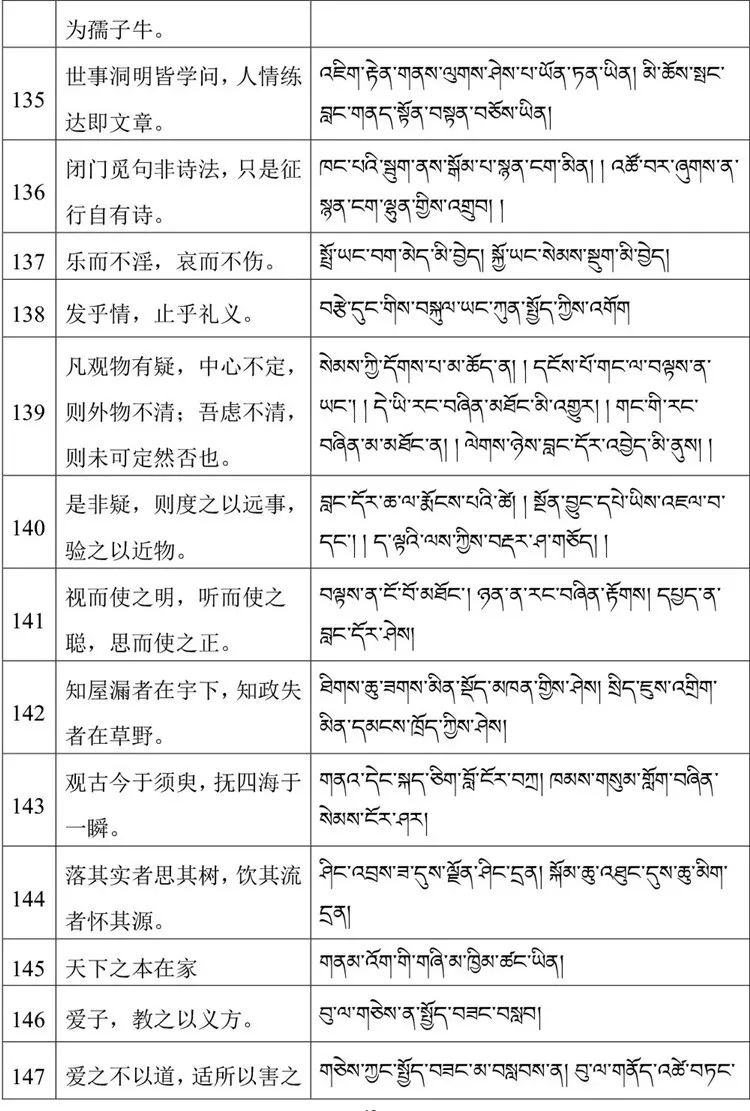 为孺子牛。
135 世事洞明皆学问，人情练 འཇིག་རྟེན་གནས་ལུགས་ཤེས་པ་ཡོན་ཏན་ཡིན། མི་ཆོས་སྤང་
达即文章。 བླང་གནད་སྟོན་བསྟན་བཅོས་ཡིན།
136 闭门觅句非诗法，只是征 ཁང་པའི་སྦུག་ནས་སྒོམ་པ་སྙན་ངག་མིན། ། འཚོ་བར་ཞུགས་ན་
行自有诗。 སྙན་ངག་ལྷུན་གྱིས་འགྲུབ། །
137 乐而不淫，哀而不伤。 སྤྲོ་ཡང་བག་མེད་མི་བྱེད། སྐྱོ་ཡང་སེམས་སྡུག་མི་བྱེད།
138 发乎情，止乎礼义。 བརྩེ་དུང་གིས་བསྐུལ་ཡང་ཀུན་སྤྱོད་ཀྱིས་འགོག
139 凡观物有疑，中心不定， སེམས་ཀྱི་དོགས་པ་མ་ཆོད་ན། ། དངོས་པོ་གང་ལ་བལྟས་ན་
则外物不清；吾虑不清， ཡང་། ། དེ་ཡི་རང་བཞིན་མཐོང་མི་འགྱུར། ། གང་གི་རང་
则未可定然否也。 བཞིན་མ་མཐོང་ན། ། ལེགས་ཉེས་བླང་དོར་འབྱེད་མི་ནུས། །
140 是非疑，则度之以远事， བླང་དོར་ཆ་ལ་རྨོངས་པའི་ཚེ། ། སྔོན་བྱུང་དཔེ་ཡིས་འཇལ་བ་
验之以近物。 དང་། ། ད་ལྟའི་ལས་ཀྱིས་བརྡར་ཤ་གཅོད། །
141 视而使之明，听而使之 བལྟས་ན་ངོ་བོ་མཐོང་། ཉན་ན་རང་བཞིན་རྟོགས། དཔྱད་ན་
聪，思而使之正。 བླང་དོར་ཤེས།
142 知屋漏者在宇下，知政失 ཐིགས་ཆུ་ཟགས་མིན་སྡོད་མཁན་གྱིས་ཤེས། སྲིད་ཇུས་འགྲིག་
者在草野。 མིན་དམངས་ཁྲོད་ཀྱིས་ཤེས།
143 观古今于须臾，抚四海于 གནའ་དེང་སྐད་ཅིག་བློ་ངོར་བཀྲ། ཁམས་གསུམ་གློག་བཞིན་
一瞬。 སེམས་ངོར་ཤར།
144 落其实者思其树，饮其流 ཤིང་འབྲས་ཟ་དུས་ལྗོན་ཤིང་དྲན། སྐོམ་ཆུ་འཐུང་དུས་ཆུ་མིག་
者怀其源。 དྲན།
145 天下之本在家 གནམ་འོག་གི་གཞི་མ་ཁྱིམ་ཚང་ཡིན།
146 爱子，教之以义方。 བུ་ལ་གཅེས་ན་སྤྱོད་བཟང་བསླབ།
147 爱之不以道，适所以害之 གཅེས་ཀྱང་སྤྱོད་བཟང་མ་བསླབས་ན། བུ་ལ་གནོད་འཚེ་བཏང་